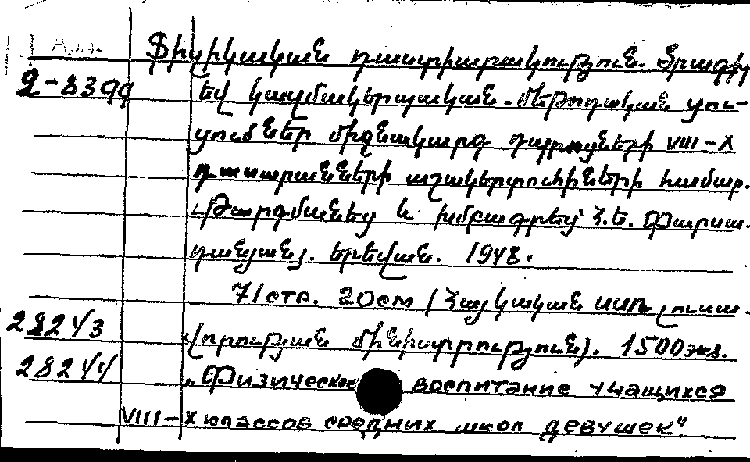 Ֆիզիկական դաստիարակություն. Ծրագիր
2-3399 եվ կազմակերպական-մեթոդական ցու-
ցումներ միջնակարգ դպրոցների VIII-X
դասարանների աշակերտուհիների համար.
Թարգմանեց և խմբագրեց Հ. Ե. Փարսա-
դանյանց. Երեվան. 1948.
71 стр. 20см (Հայկական ՍՍՌ լուսա-
28243 վորության մինիստրություն). 1500 экз.
28244 „Физическое воспитание учащихся
VIII-X классов средних школ девушек"